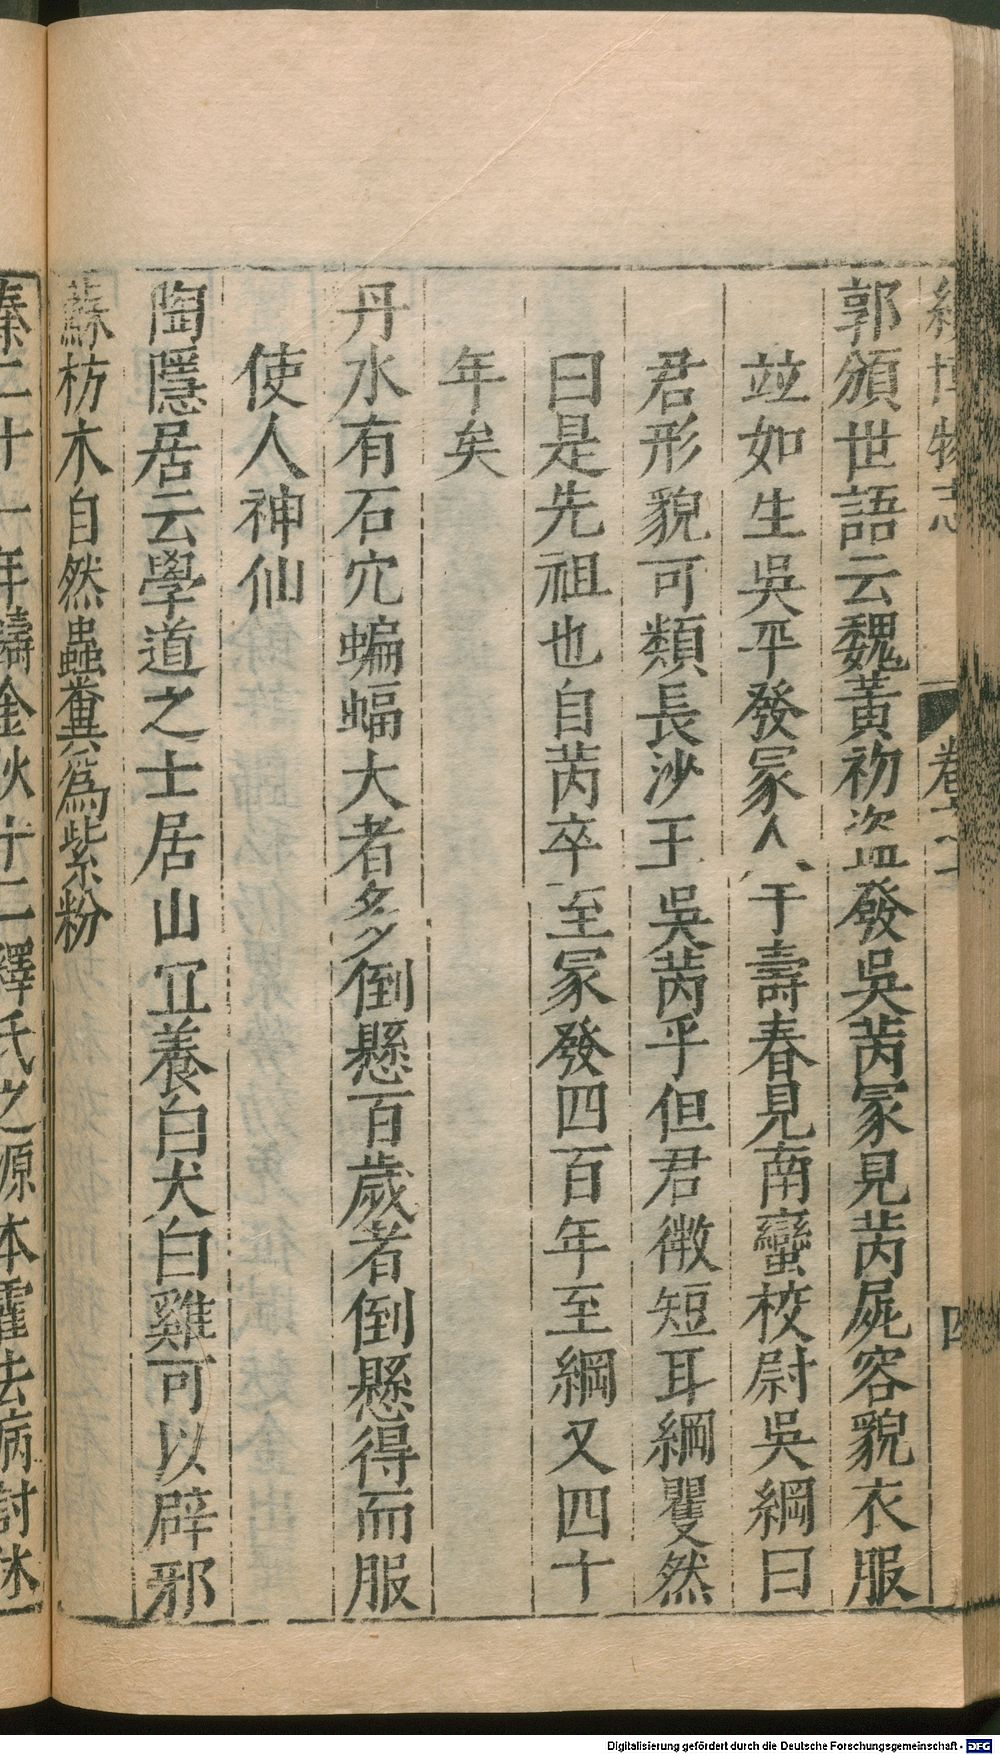 續博物志
卷之七
四
郭頒世語云魏黃初盜發吳芮冡見芮屍容貌衣服
並如生吳平發冡人于壽春見南蠻校尉吳綱曰
君形貌可類長沙王吳芮乎但君微短耳綱瞿然
曰是先祖也自芮卒至冡發四百年至綱又四十
年矣
丹水有石穴蝙蝠大者多倒懸百歲者倒懸得而服
使人神仙
陶隱居云學道之士居山宜養白犬白雞可以辟邪
蘇枋木自然蟲糞爲紫粉
秦二十六年鑄金狄十二釋氏之源本霍去病討休
Digitalisierung gefördert durch die Deutsche Forschungsgemeinschaft - DFG